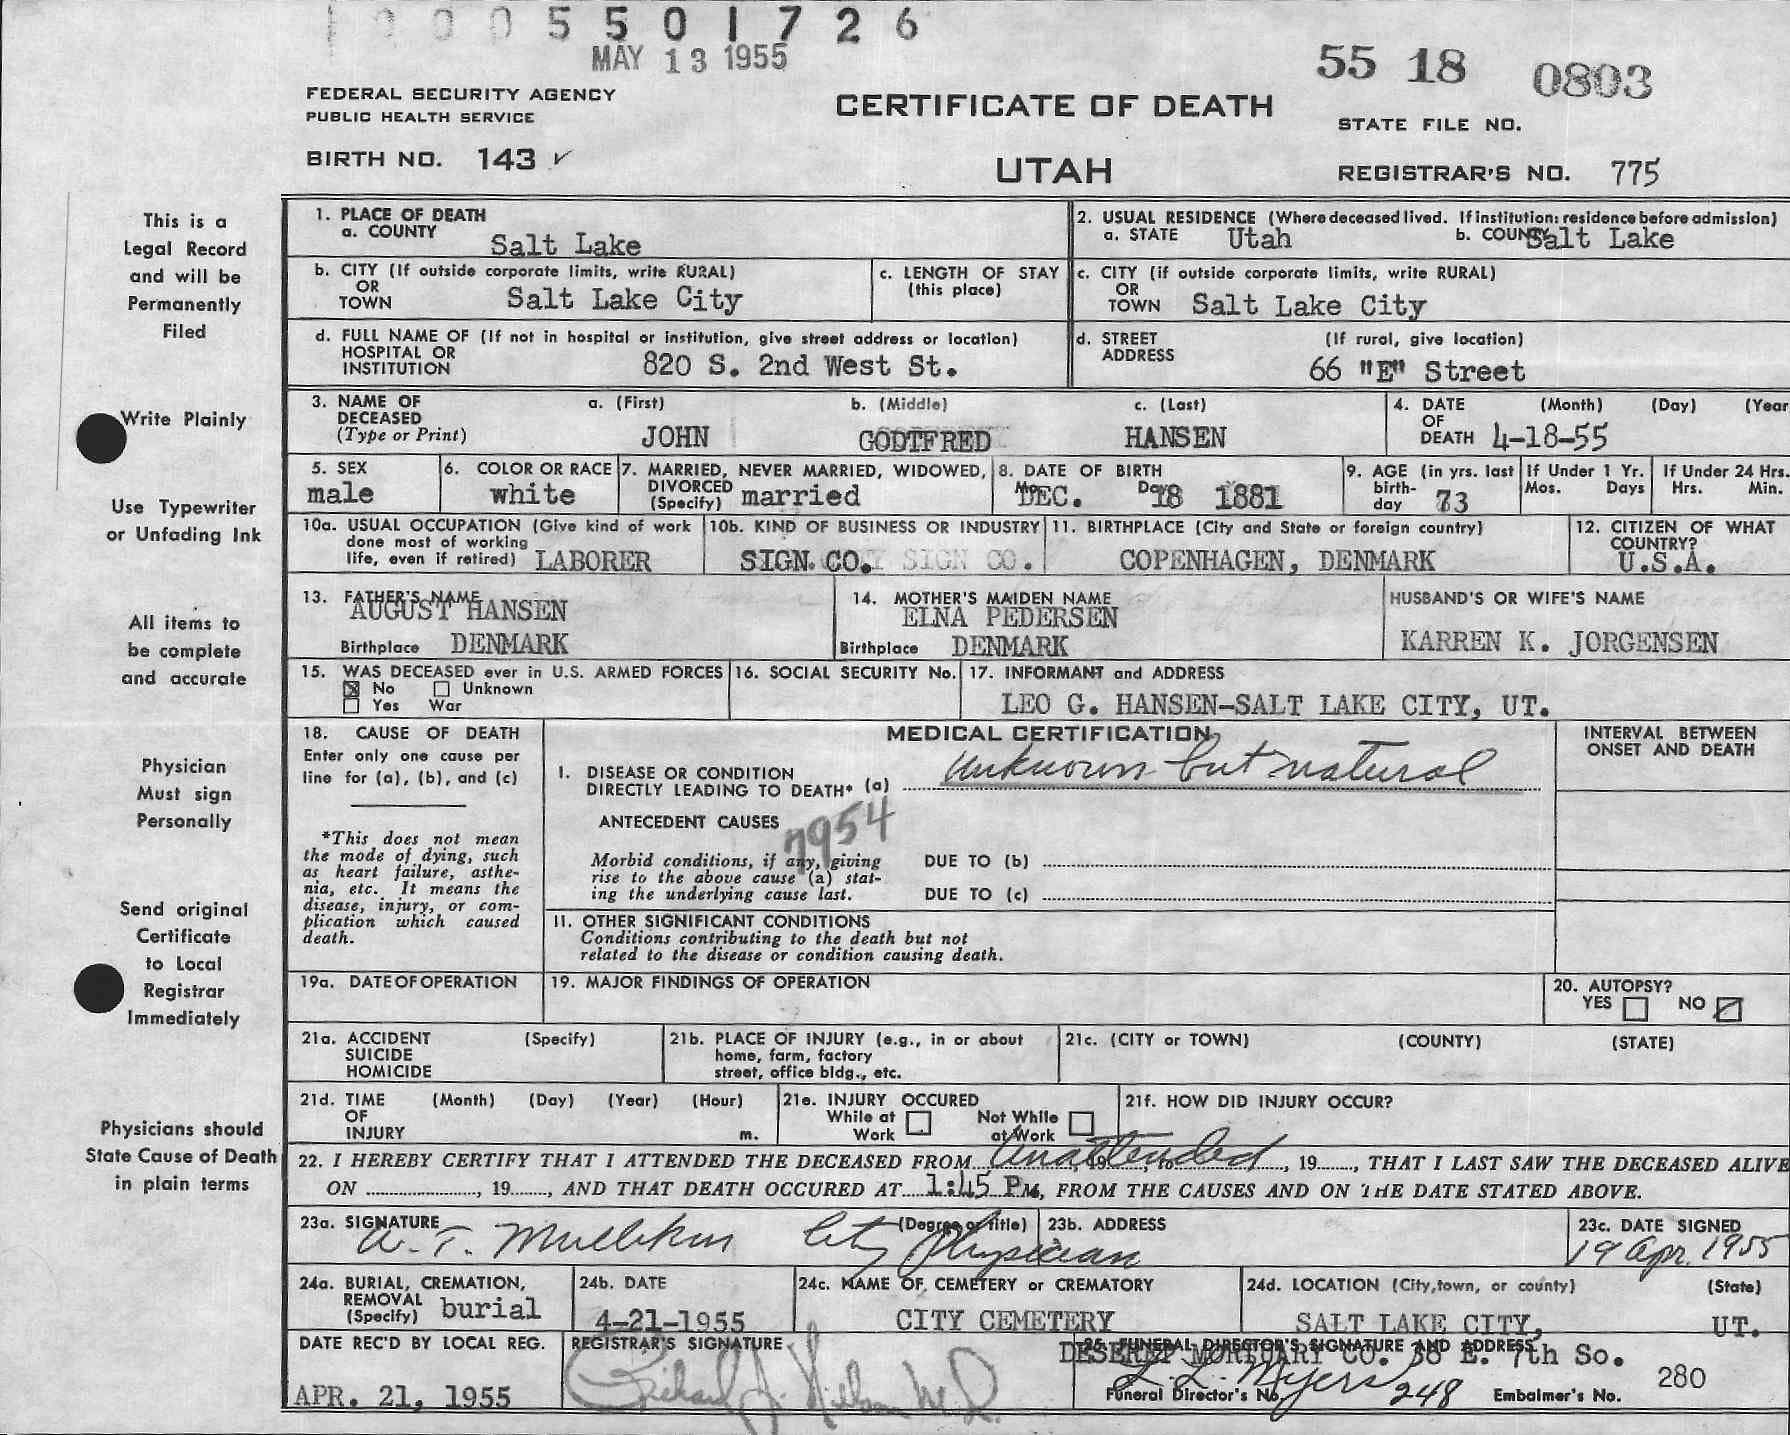 0005501726
MAY 13 1955
55 18 0803
FEDERAL SECURITY AGENCY
PUBLIC HEALTH SERVICE
CERTIFICATE OF DEATH
STATE FILE NO.
BIRTH NO. 143 ✓
UTAH
REGISTRAR'S NO. 775
This is a
Legal Record
and will be
Permanently
Filed
Write Plainly
Use Typewriter
or Unfading Ink
All items to
be complete
and accurate
Physician
Must sign
Personally
Send original
Certificate
to Local
Registrar
Immediately
Physicians should
State Cause of Death
in plain terms
1. PLACE OF DEATH
a. COUNTY
Salt Lake
2. USUAL RESIDENCE (Where deceased lived. If institution: residence before admission)
a. STATE Utah b. COUNTY Salt Lake
b. CITY (If outside corporate limits, write RURAL)
OR
TOWN Salt Lake City
c. LENGTH OF STAY
(this place)
c. CITY (if outside corporate limits, write RURAL)
OR
TOWN Salt Lake City
d. FULL NAME OF (If not in hospital or institution, give street address or location)
HOSPITAL OR
INSTITUTION 820 S. 2nd West St.
d. STREET (If rural, give location)
ADDRESS
66 "E" Street
3. NAME OF a. (First) b. (Middle) c. (Last)
DECEASED
(Type or Print) JOHN GODTFRED HANSEN
4. DATE (Month) (Day) (Year
OF
DEATH 4-18-55
5. SEX
male
6. COLOR OR RACE
white
7. MARRIED, NEVER MARRIED, WIDOWED,
DIVORCED
(Specify) married
8. DATE OF BIRTH
Mo. Day
DEC. 18 1881
9. AGE (in yrs. last
birth-
day 73
If Under 1 Yr.
Mos. Days
If Under 24 Hrs.
Hrs. Min.
10a. USUAL OCCUPATION (Give kind of work
done most of working
life, even if retired) LABORER
10b. KIND OF BUSINESS OR INDUSTRY
SIGN. CO. SIGN CO.
11. BIRTHPLACE (City and State or foreign country)
COPENHAGEN, DENMARK
12. CITIZEN OF WHAT
COUNTRY?
U.S.A.
13. FATHER'S NAME
AUGUST HANSEN
Birthplace DENMARK
14. MOTHER'S MAIDEN NAME
ELNA PEDERSEN
Birthplace DENMARK
HUSBAND'S OR WIFE'S NAME
KARREN K. JORGENSEN
15. WAS DECEASED ever in U.S. ARMED FORCES
No Unknown
Yes War
16. SOCIAL SECURITY No.
17. INFORMANT and ADDRESS
LEO G. HANSEN-SALT LAKE CITY, UT.
18. CAUSE OF DEATH
Enter only one cause per
line for (a), (b), and (c)
*This does not mean
the mode of dying, such
as heart failure, asthe-
nia, etc. It means the
disease, injury, or com-
plication which caused
death.
MEDICAL CERTIFICATION
I. DISEASE OR CONDITION
DIRECTLY LEADING TO DEATH* (a) Unknown but natural
ANTECEDENT CAUSES
7954
Morbid conditions, if any, giving
rise to the above cause (a) stat-
ing the underlying cause last.
DUE TO (b)
DUE TO (c)
II. OTHER SIGNIFICANT CONDITIONS
Conditions contributing to the death but not
related to the disease or condition causing death.
INTERVAL BETWEEN
ONSET AND DEATH
19a. DATE OF OPERATION
19. MAJOR FINDINGS OF OPERATION
20. AUTOPSY?
YES NO
21a. ACCIDENT (Specify)
SUICIDE
HOMICIDE
21b. PLACE OF INJURY (e.g., in or about
home, farm, factory
street, office bldg., etc.
21c. (CITY or TOWN) (COUNTY) (STATE)
21d. TIME (Month) (Day) (Year) (Hour)
OF
INJURY m.
21e. INJURY OCCURED
While at Not While
Work at Work
21f. HOW DID INJURY OCCUR?
22. I HEREBY CERTIFY THAT I ATTENDED THE DECEASED FROM Unattended, 19 , to , 19 , THAT I LAST SAW THE DECEASED ALIVE
ON , 19 , AND THAT DEATH OCCURED AT 1:45 P M, FROM THE CAUSES AND ON THE DATE STATED ABOVE.
23a. SIGNATURE (Degree or title)
City Physician
23b. ADDRESS
23c. DATE SIGNED
19 Apr. 1955
24a. BURIAL, CREMATION,
REMOVAL
(Specify) burial
24b. DATE
4-21-1955
24c. NAME OF CEMETERY or CREMATORY
CITY CEMETERY
24d. LOCATION (City, town, or county) (State)
SALT LAKE CITY, UT.
DATE REC'D BY LOCAL REG.
APR. 21, 1955
REGISTRAR'S SIGNATURE
25. FUNERAL DIRECTOR'S SIGNATURE AND ADDRESS
DESERET MORTUARY CO. 36 E. 7th So.
L. L. Myers
Funeral Director's No. 248 Embalmer's No. 280